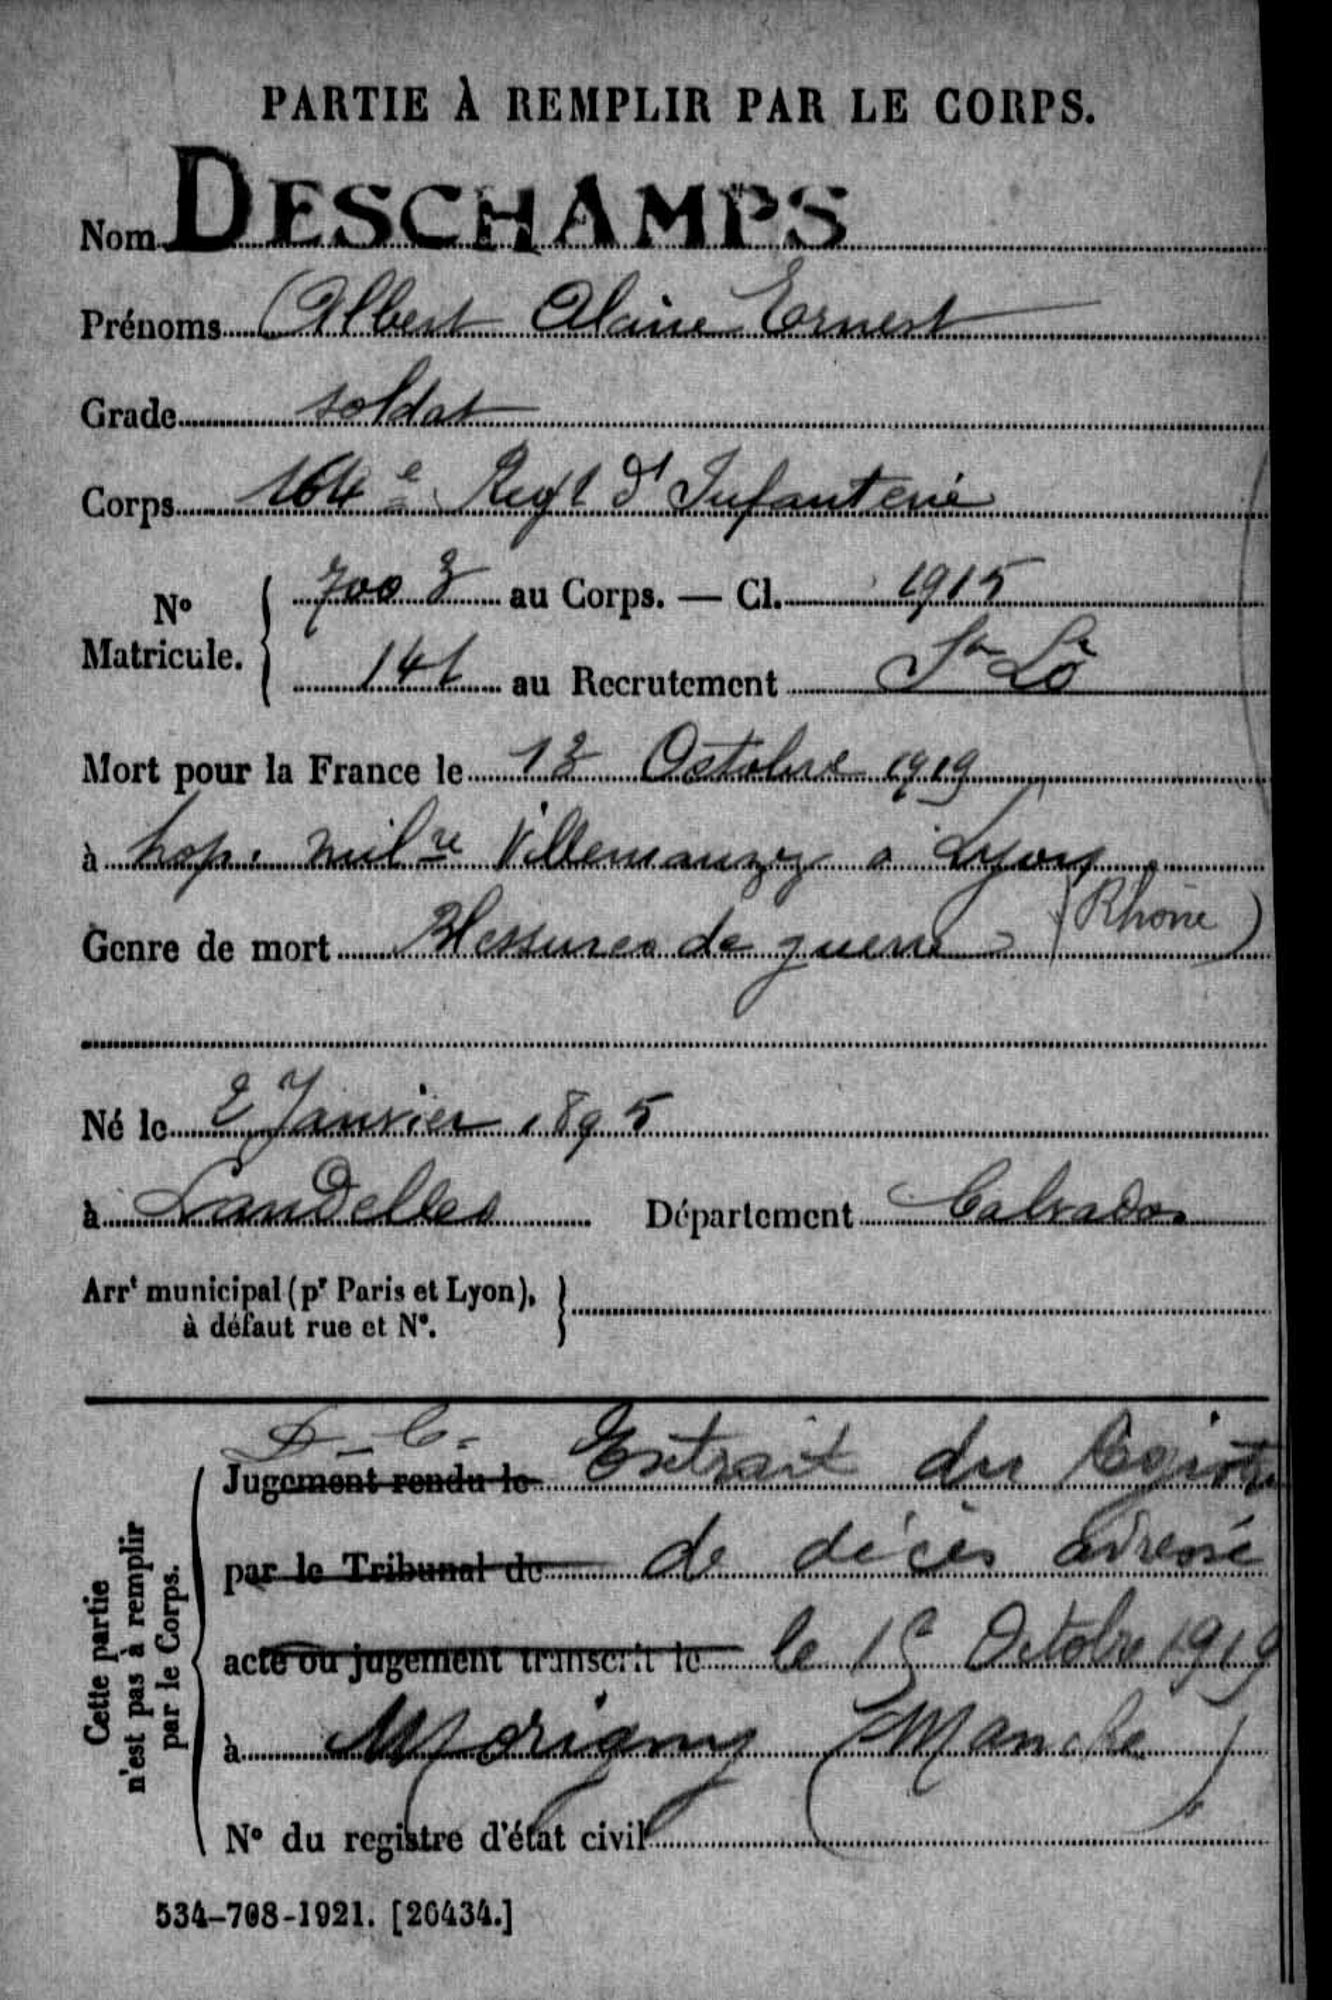 PARTIE À REMPLIR PAR LE CORPS.
Nom DESCHAMPS
Prénoms Albert Ernest
Grade soldat
Corps 164e Regt d'Infanterie
N° Matricule. 7003 au Corps. — Cl. 1915
141 au Recrutement St Lô
Mort pour la France le 13 Octobre 1919
à hop. milre Villemanzy à Lyon
(Rhône)
Genre de mort Blessures de guerre
Né le 2 Janvier 1895
à Landelles Département Calvados
Arrt municipal (pr Paris et Lyon),
à défaut rue et N°.
D. C. Extrait du
Jugement rendu le
par le Tribunal de de décès adressé
acte ou jugement transcrit le le Octobre 1919
à Morigny (Manche)
N° du registre d'état civil
Cette partie
n'est pas à remplir
par le Corps.
534-708-1921. [26434.]